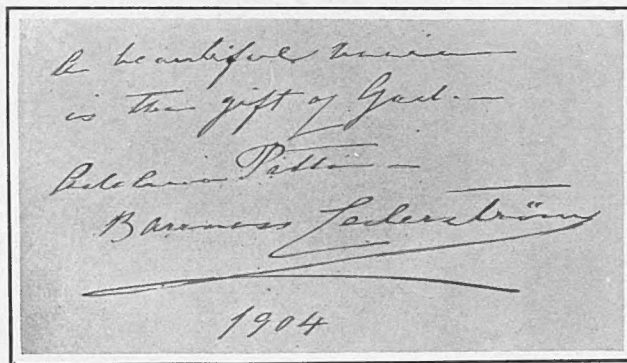 A beautiful voice
is the gift of God. —
Adelina Patti —
Baroness Cederström
1904